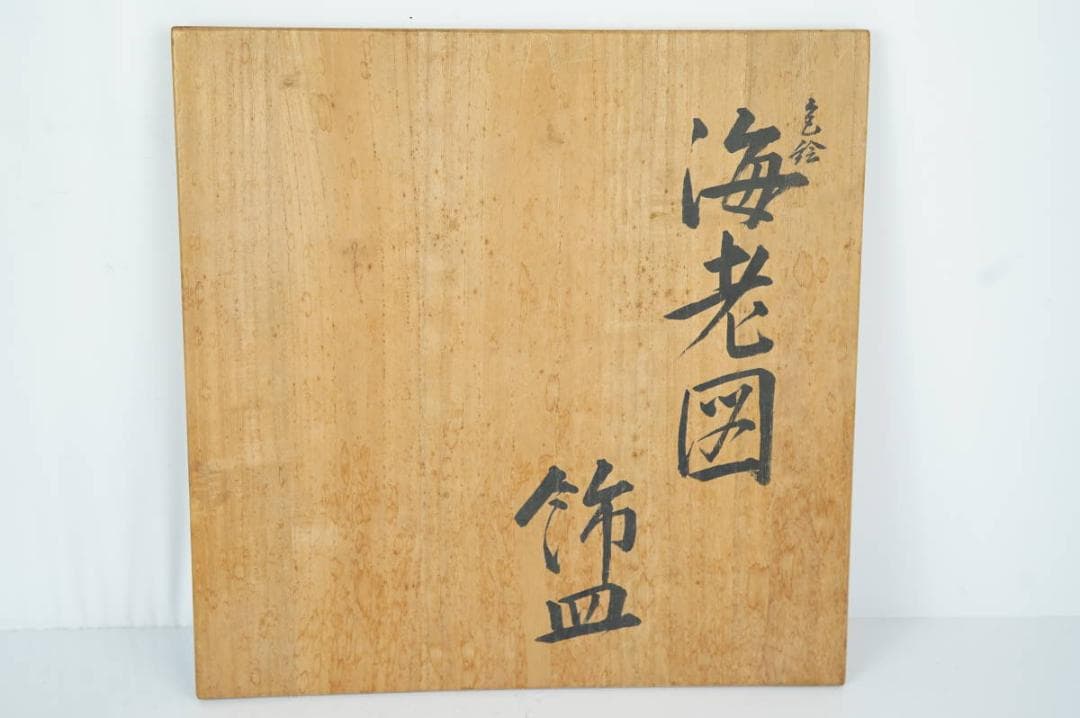 色絵
海老図
飾皿